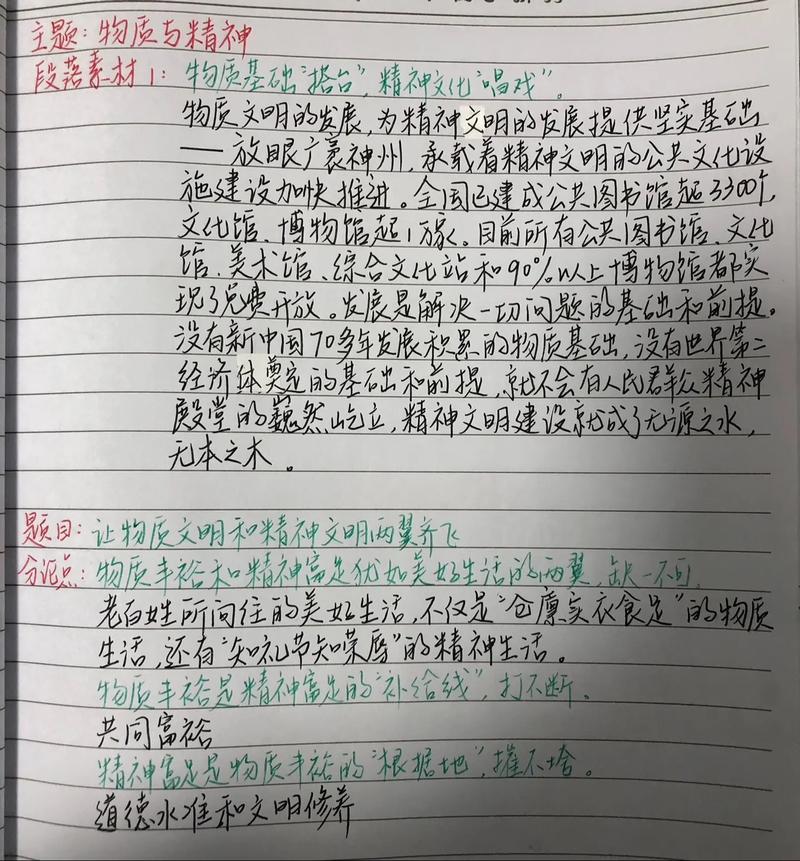 主题：物质与精神
段落素材1：物质基础“搭台”，精神文化“唱戏”。
物质文明的发展，为精神文明的发展提供坚实基础
——放眼广袤神州，承载着精神文明的公共文化设
施建设加快推进。全国已建成公共图书馆超3300个，
文化馆、博物馆超1万家。目前所有公共图书馆、文化
馆、美术馆、综合文化站和90%以上博物馆都实
现了免费开放。发展是解决一切问题的基础和前提。
没有新中国70多年发展积累的物质基础，没有世界第二
经济体奠定的基础和前提，就不会有人民群众精神
殿堂的巍然屹立，精神文明建设就成了无源之水，
无本之木。
题目：让物质文明和精神文明两翼齐飞
分论点：物质丰裕和精神富足犹如美好生活的两翼，缺一不可。
老百姓所向往的美好生活，不仅是“仓廪实衣食足”的物质
生活，还有“知礼节知荣辱”的精神生活。
物质丰裕是精神富足的“补给线”，打不断。
共同富裕
精神富足是物质丰裕的“根据地”，摧不垮。
道德水准和文明修养